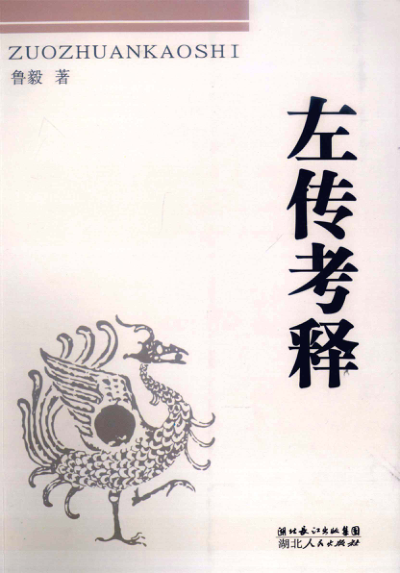 ZUOZHUANKAOSHI
鲁毅 著
左传考释
湖北长江出版集团
湖北人民出版社